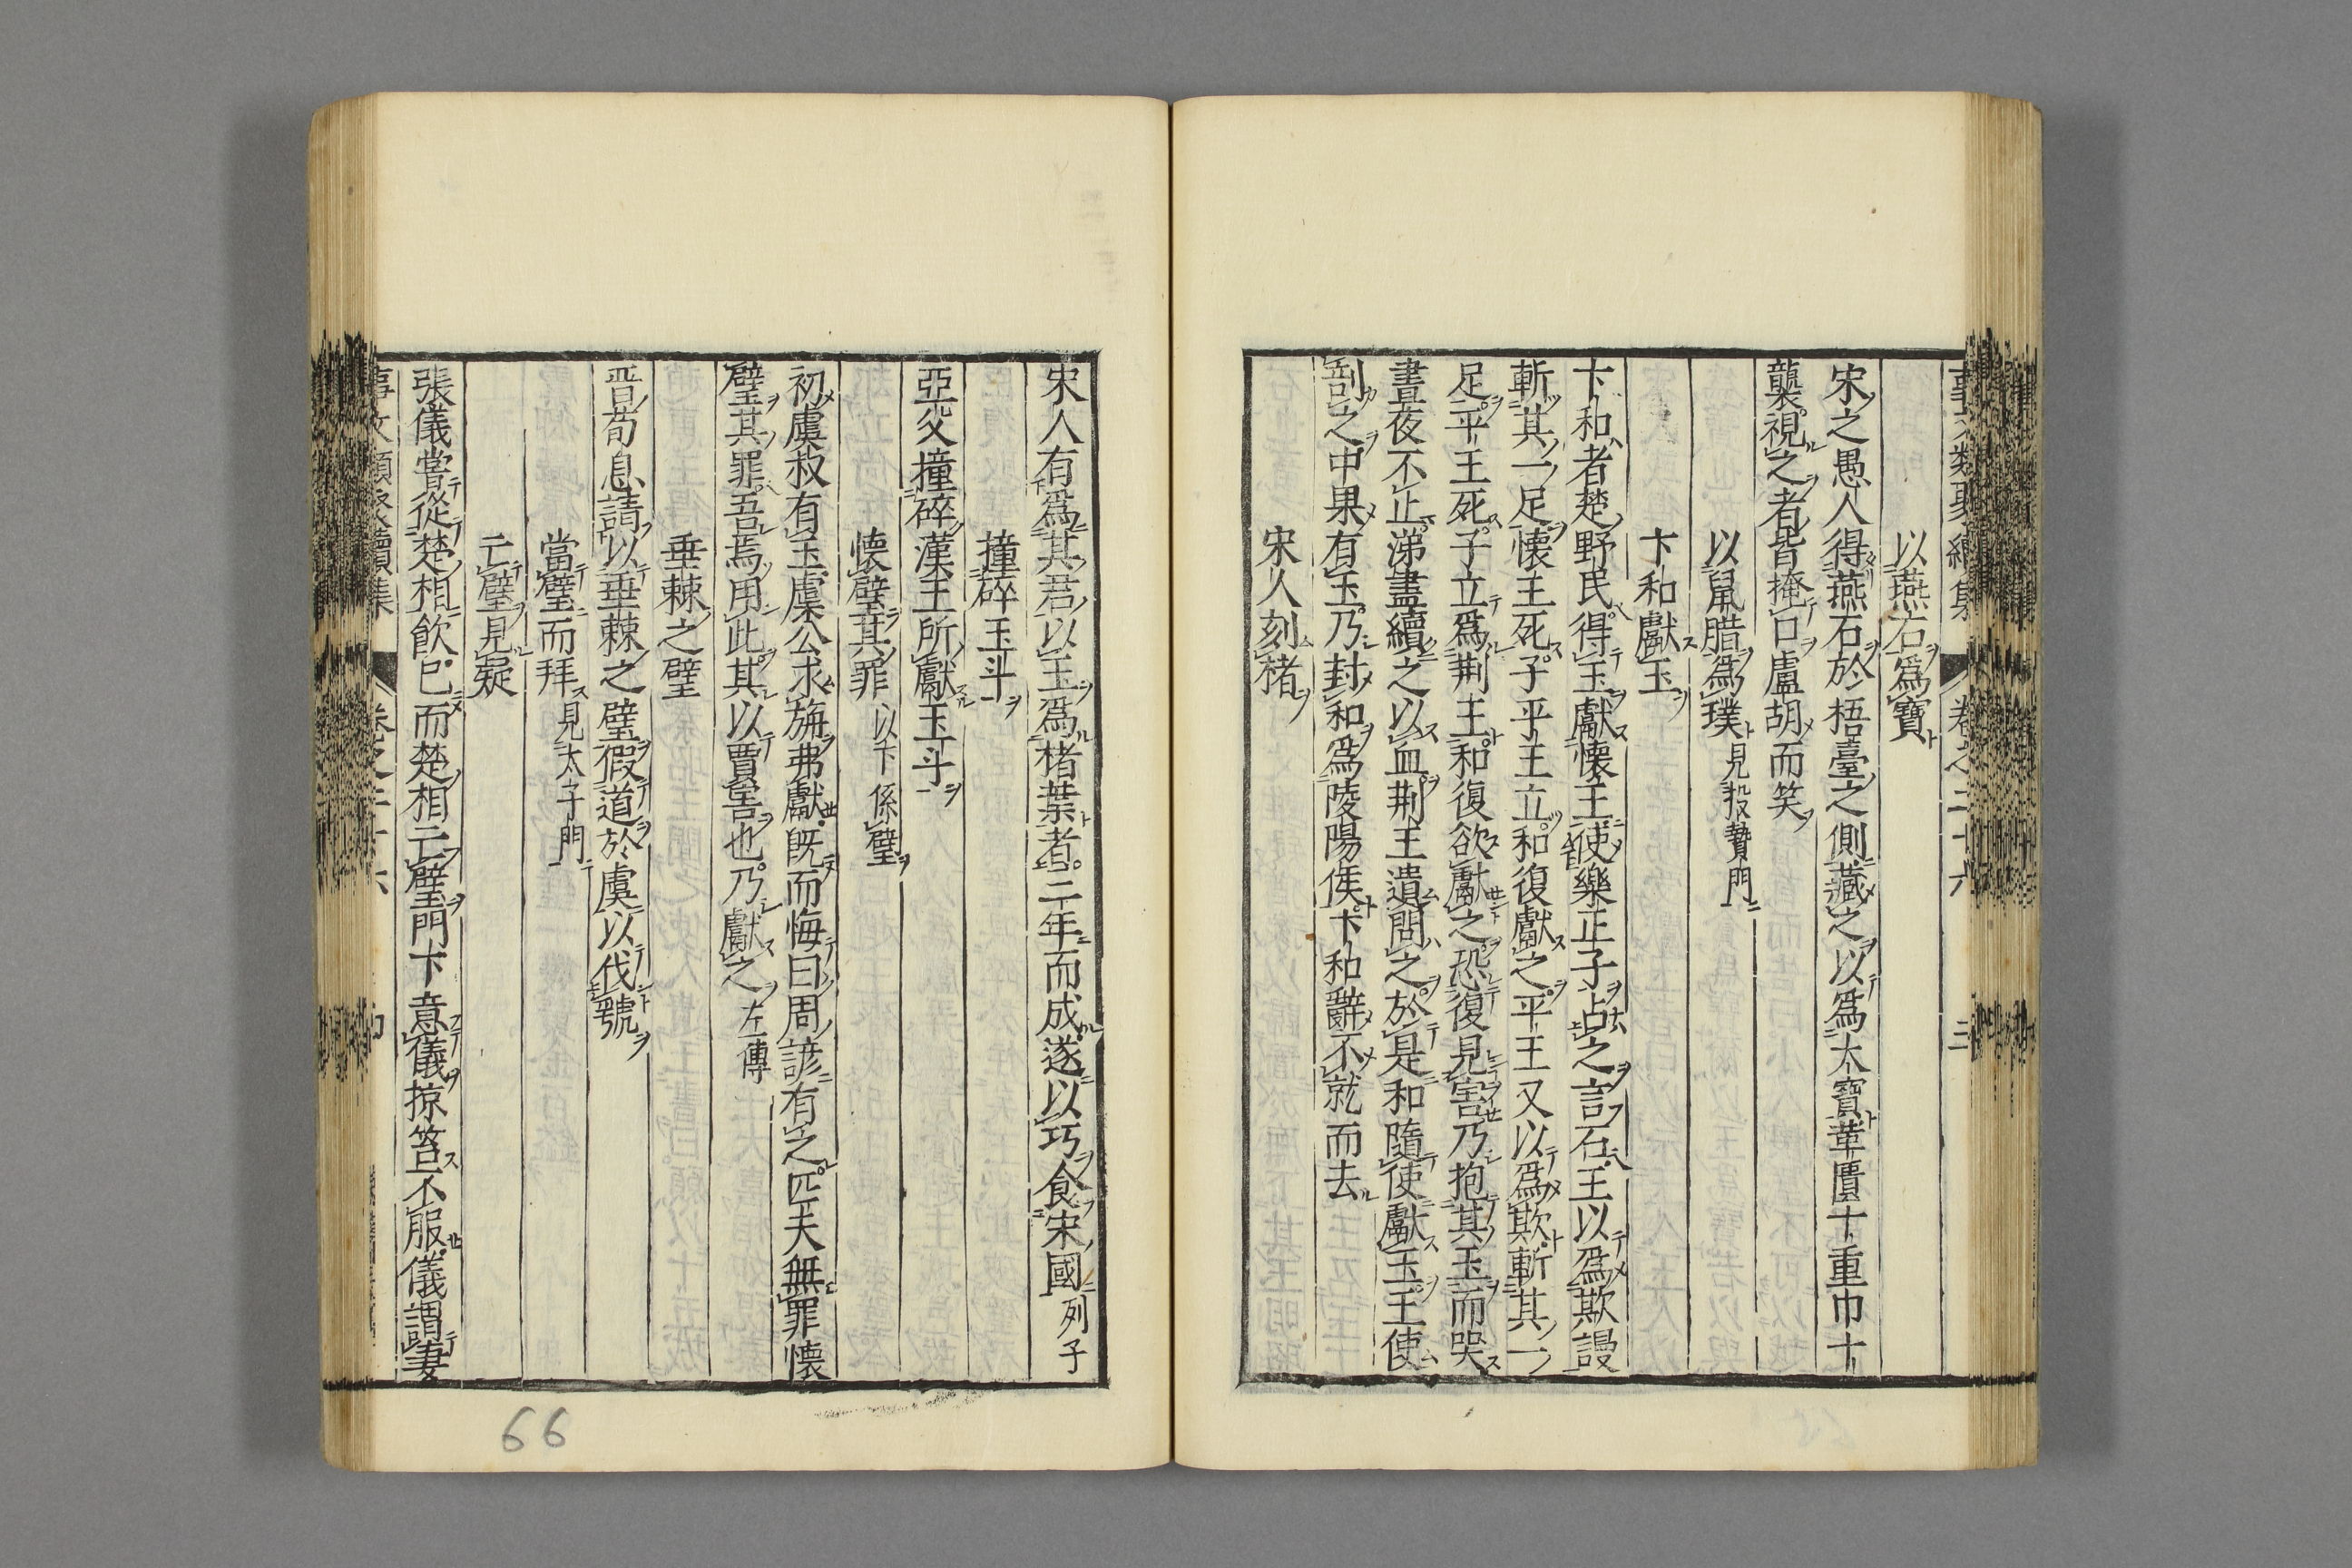 以燕石爲寶
宋之愚人得燕石於梧臺之側藏之以爲太寶革匱十重巾十
襲視之者皆掩口盧胡而笑
以鼠腊爲璞 見投贄門
卞和獻玉
卞和者楚野民得玉獻懷王使樂正子占之言石王以爲欺謾
斬其一足懷王死子平王立和復獻之平王又以爲欺斬其一
足平王死子立爲荆王和復欲獻之恐復見害乃抱其玉而哭
晝夜不止涕盡續之以血荆王遣問之於是和隨使獻玉王使
剖之中果有玉乃封和爲陵陽侯卞和辭不就而去
宋人刻楮
宋人有爲其君以玉爲楮葉者三年而成遂以巧食宋國 列子
撞碎玉斗
亞父撞碎漢王所獻玉斗
懷璧其罪 以下係璧
初虞叔有玉虞公求旃弗獻既而悔曰周諺有之匹夫無罪懷
璧其罪吾焉用此其以賈害也乃獻之 左傳
垂棘之璧
晋荀息請以垂棘之璧假道於虞以伐虢
當璧而拜 見太子門
亡璧見疑
張儀嘗從楚相飮已而楚相亡璧門下意儀掠笞不服儀謂妻
卷之二十六
66